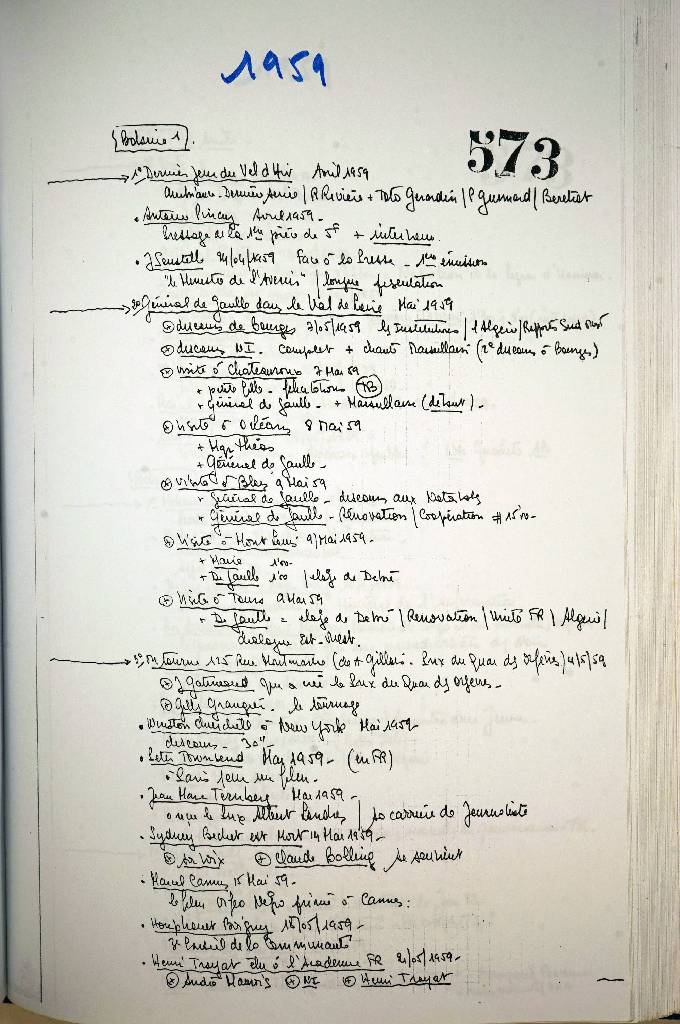 1959
573
Bobine 1
1° Derniers Jours du Vel d'Hiv Avril 1959
Ambiance. Dernière Série / R Rivière + Toto Gerardin / P Guimard / Beretrot
• Antoine Pinay Avril 1959 -
Pressage de la 1ère pièce de 5F + interview
• J Soustelle 24/04/1959 Face à la Presse - 1ère émission
"le Ministre de l'Avenir" / longue présentation
2° Général de Gaulle dans le Val de Loire Mai 1959
discours de Bourges 7/05/1959 les Institutions / l'Algérie / Rapports Est Ouest
discours NI. complet + chants Marseillaise (2e discours à Bourges)
visite à Chateauroux 7 Mai 59
+ petite fille - félicitations TB
+ Général de Gaulle - + Marseillaise (début) -
Visite à Orléans 8 Mai 59
+ Mgr
+ Général de Gaulle -
visite à Blois 9 Mai 59
+ Général de Gaulle - discours aux Notables
+ Général de Gaulle - Rénovation / Coopération # 1'50 -
Visite à Mont Louis 9/Mai 1959 -
+ Maire 1'00 -
+ De Gaulle 1'00 / éloge de Debré
Visite à Tours 9 Mai 59
+ De Gaulle = éloge de Debré / Renovation / Unité FR / Algérie /
dialogue Est-Ouest.
3° On tourne 125 Rue Montmartre (de Gilles - Prix du Quai des Orfèvres) 4/5/59
J Gatineaud qui a créé le Prix du Quai des Orfèvres -
Gilles Grangier - le tournage
• Winston Churchill à New York Mai 1959 -
discours - 30" -
• Peter Townsend Mai 1959 - (en FR)
à Paris pour un film -
• Jean Marc Ternberg Mai 1959 -
a reçu le Prix Albert Londres / sa carrière de Journaliste
• Sydney Bechet est Mort 14 Mai 1959 -
sa voix Claude Bolling se souvient
• Marcel Camus 15 Mai 59 -
le film Orfeo Negro primé à Cannes :
• Houphouet Boigny 18/05/1959 -
Conseil de la Communauté
• Henri Troyat élu à l'Academie FR 21/05/1959 -
André Maurois NI Henri Troyat